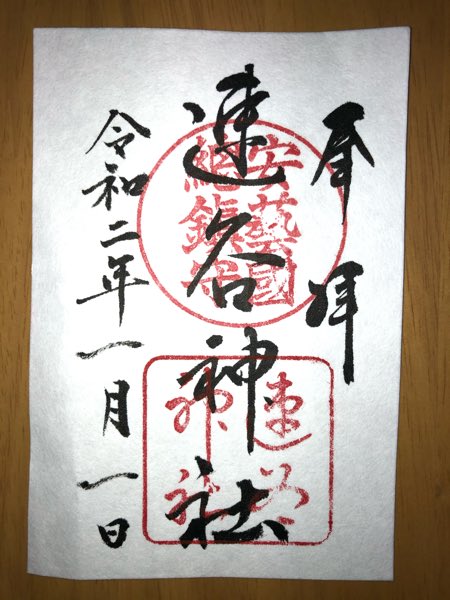 奉拝
速谷神社
安藝國
総鎮守
速谷
神社
令和二年一月一日